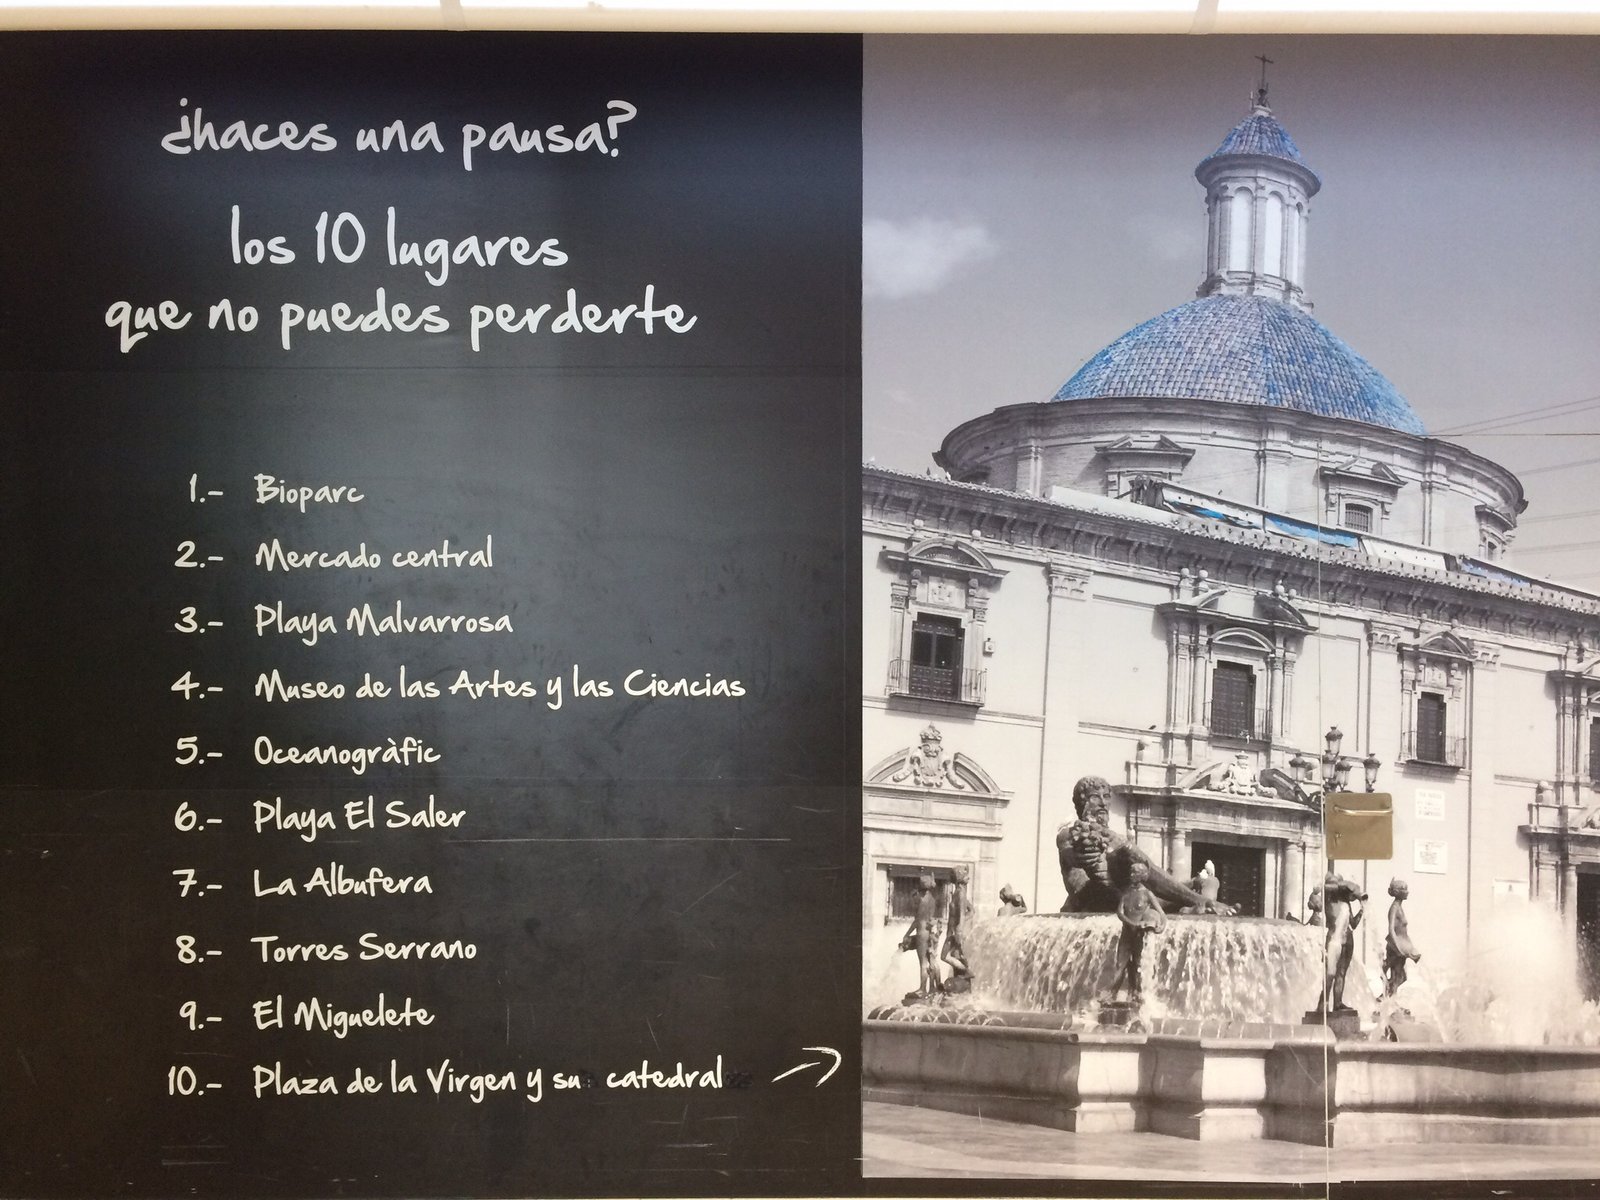 ¿haces una pausa?
los 10 lugares
que no puedes perderte
1.- Bioparc
2.- Mercado central
3.- Playa Malvarrosa
4.- Museo de las Artes y las Ciencias
5.- Oceanogràfic
6.- Playa El Saler
7.- La Albufera
8.- Torres Serrano
9.- El Miguelete
10.- Plaza de la Virgen y su catedral